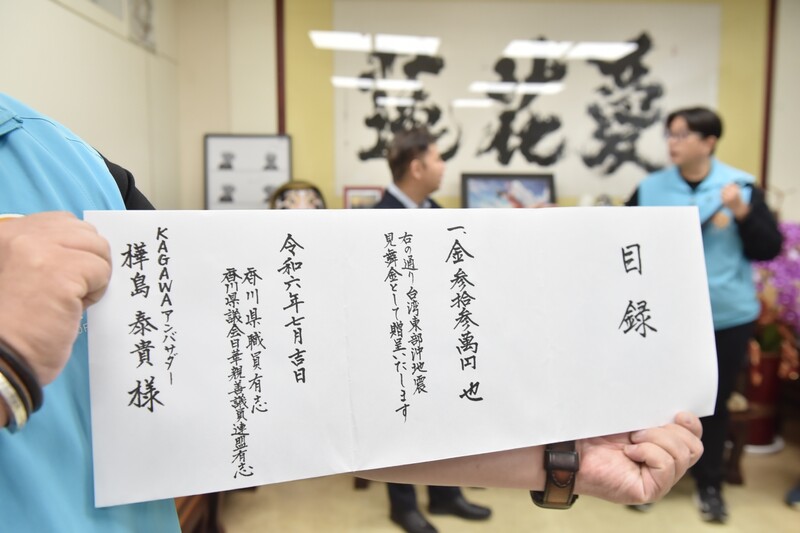 愛花蓮
目録
一、金 参拾参萬円 也
右の通り台湾東部沖地震
見舞金として贈呈いたします
令和六年七月吉日
香川県職員有志
香川県議会日華親善議員連盟有志
KAGAWAアンバサダー
樺島 泰貴 様